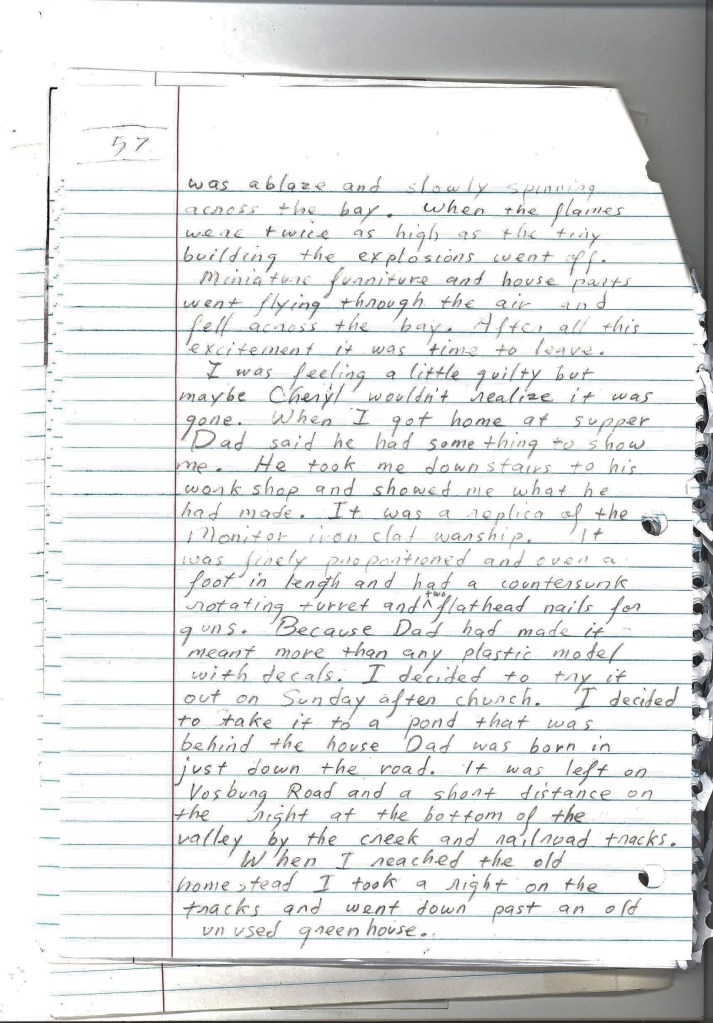 57
was ablaze and slowly spinning
across the bay. When the flames
were twice as high as the tiny
building the explosions went off.
Miniature furniture and house parts
went flying through the air and
fell across the bay. After all this
excitement it was time to leave.
I was feeling a little guilty but
maybe Cheryl wouldn't realize it was
gone. When I got home at supper
Dad said he had something to show
me. He took me downstairs to his
work shop and showed me what he
had made. It was a replica of the
Monitor iron clat warship. It
was finely proportioned and over a
foot in length and had a countersunk
rotating turret and two flathead nails for
guns. Because Dad had made it
meant more than any plastic model
with decals. I decided to try it
out on Sunday after church. I decided
to take it to a pond that was
behind the house Dad was born in
just down the road. It was left on
Vosburg Road and a short distance on
the right at the bottom of the
valley by the creek and railroad tracks.
When I reached the old
homestead I took a right on the
tracks and went down past an old
unused greenhouse.